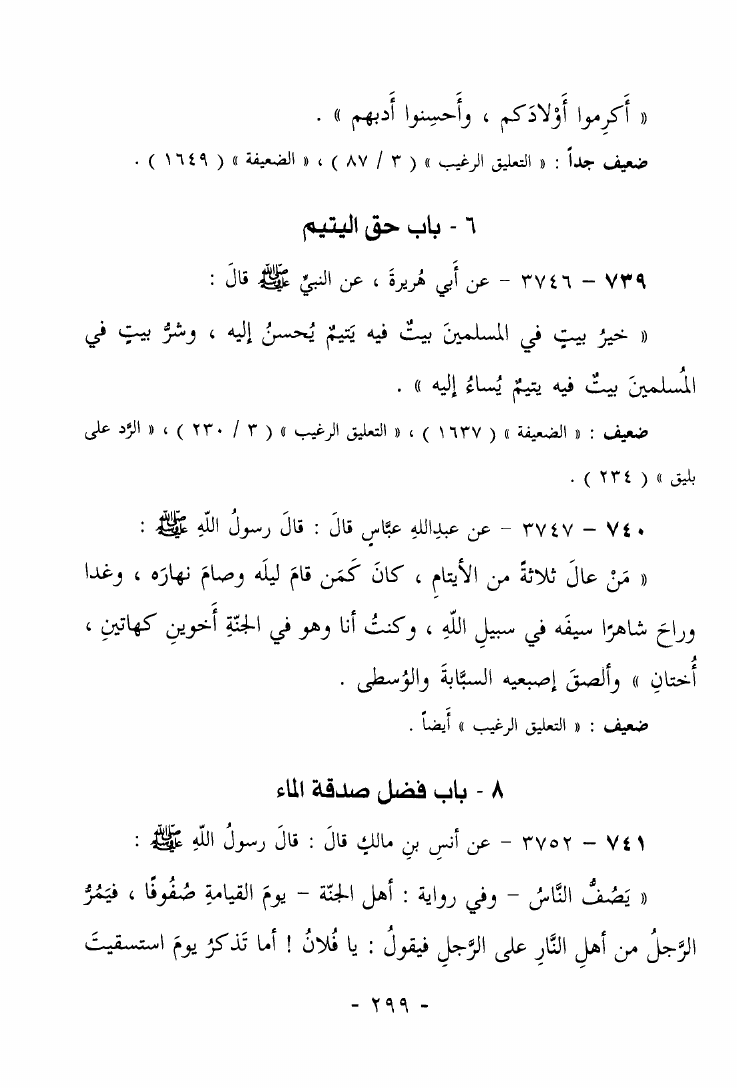 « أَكرِموا أَوْلادَكم ، وأَحسِنوا أَدبهم » .
ضعيف جداً : « التعليق الرغيب » ( ٣ / ٨٧ ) ، « الضعيفة » ( ١٦٤٩ ) .
٦ - باب حق اليتيم
٧٣٩ – ٣٧٤٦ – عن أَبي هُريرةَ ، عن النبيِّ ﷺ قالَ :
« خيرُ بيتٍ في المسلمينَ بيتٌ فيه يَتيمٌ يُحسنُ إليه ، وشرُّ بيتٍ في
المُسلمينَ بيتٌ فيه يتيمٌ يُساءُ إليه » .
ضعيف : « الضعيفة » ( ١٦٣٧ ) ، « التعليق الرغيب » ( ٣ / ٢٣٠ ) ، « الرَّد على
بليق » ( ٢٣٤ ) .
٧٤٠ – ٣٧٤٧ – عن عبدِاللهِ عبَّاسٍ قالَ : قالَ رسولُ اللّهِ ﷺ :
« مَنْ عالَ ثلاثةً من الأيتامِ ، كانَ كَمَن قامَ ليلَه وصامَ نهارَه ، وغدا
وراحَ شاهرًا سيفَه في سبيلِ اللّهِ ، وكنتُ أنا وهو في الجنّةِ أَخوينِ كهاتينِ ،
أُختانِ » وألصقَ إصبعيه السبَّابةَ والوُسطى .
ضعيف : « التعليق الرغيب » أَيضاً .
٨ - باب فضل صدقة الماء
٧٤١ – ٣٧٥٢ – عن أنسِ بنِ مالكٍ قالَ : قالَ رسولُ اللّهِ ﷺ :
« يَصُفُّ النَّاسُ – وفي رواية : أهل الجنّة – يومَ القيامةِ صُفُوفًا ، فيَمُرُّ
الرَّجلُ من أهلِ النَّارِ على الرَّجلِ فيقولُ : يا فُلانُ ! أما تَذكرُ يومَ استسقيتَ
- ٢٩٩ -